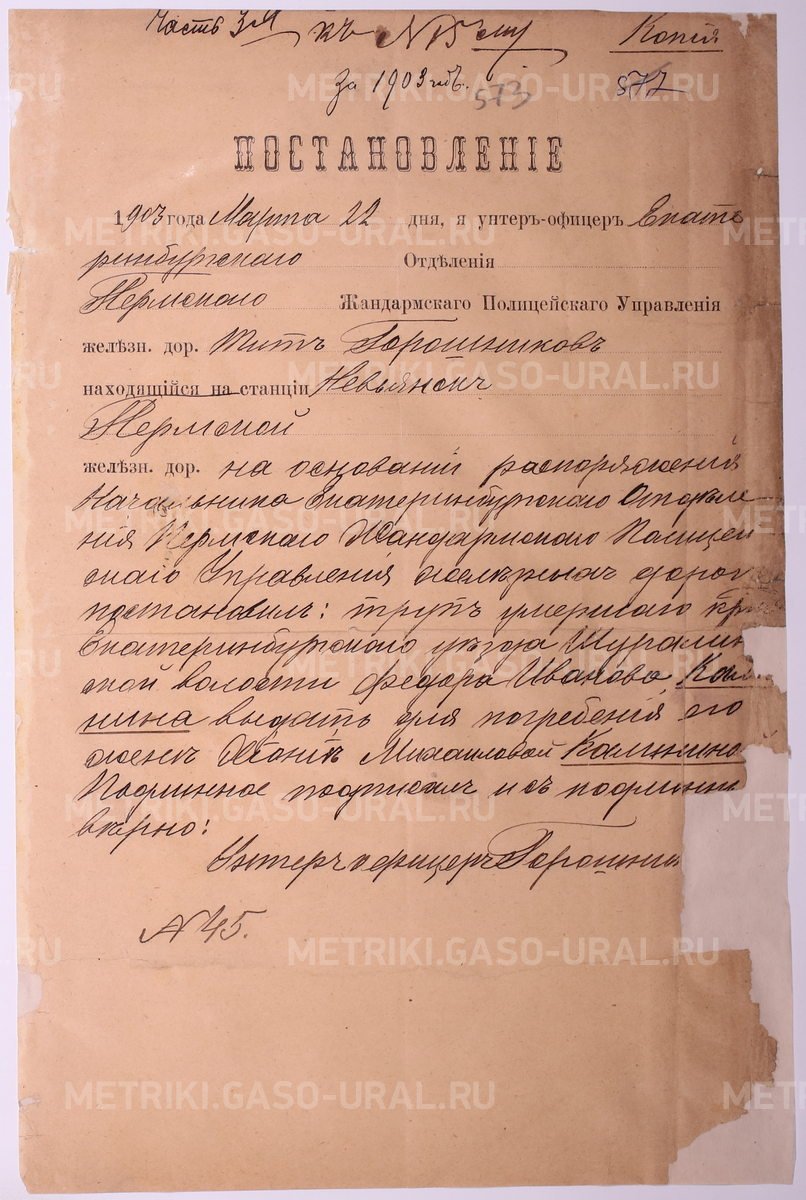 Часть 3я къ № 15ому Копія
За 1903 годъ. 573 572
ПОСТАНОВЛЕНІЕ
1903 года Марта 22 дня, я унтеръ-офицеръ Екате
ринбургскаго Отдѣленія
Пермскаго Жандармскаго Полицейскаго Управленія
желѣзн. дор. Титъ Горошниковъ
находящійся на станціи Невьянскъ
Пермской
желѣзн. дор. на основаніи распоряженія
Начальника Екатеринбургскаго Отдѣле
нія Пермскаго Жандармскаго Полицей
скаго Управленія желѣзныхъ дорог
постановилъ: трупъ умершаго кр
Екатеринбургскаго уѣзда Шуралин
ской волости Федора Иванова Кал
нина выдать для погребенія его
женѣ Михаиловой Калинино
Подлинное подписалъ и съ подлинны
вѣрно:
Унтеръ офицеръ Горошник
№ 45.
METRIKI.GASO-URAL.RU